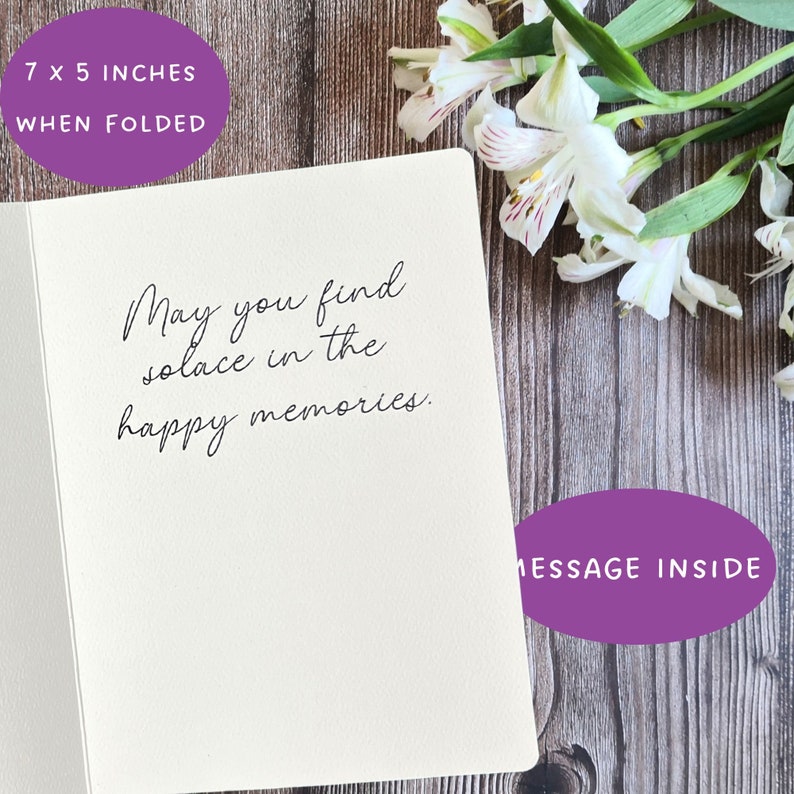 7 x 5 INCHES
WHEN FOLDED
May you find
solace in the
happy memories.
MESSAGE INSIDE